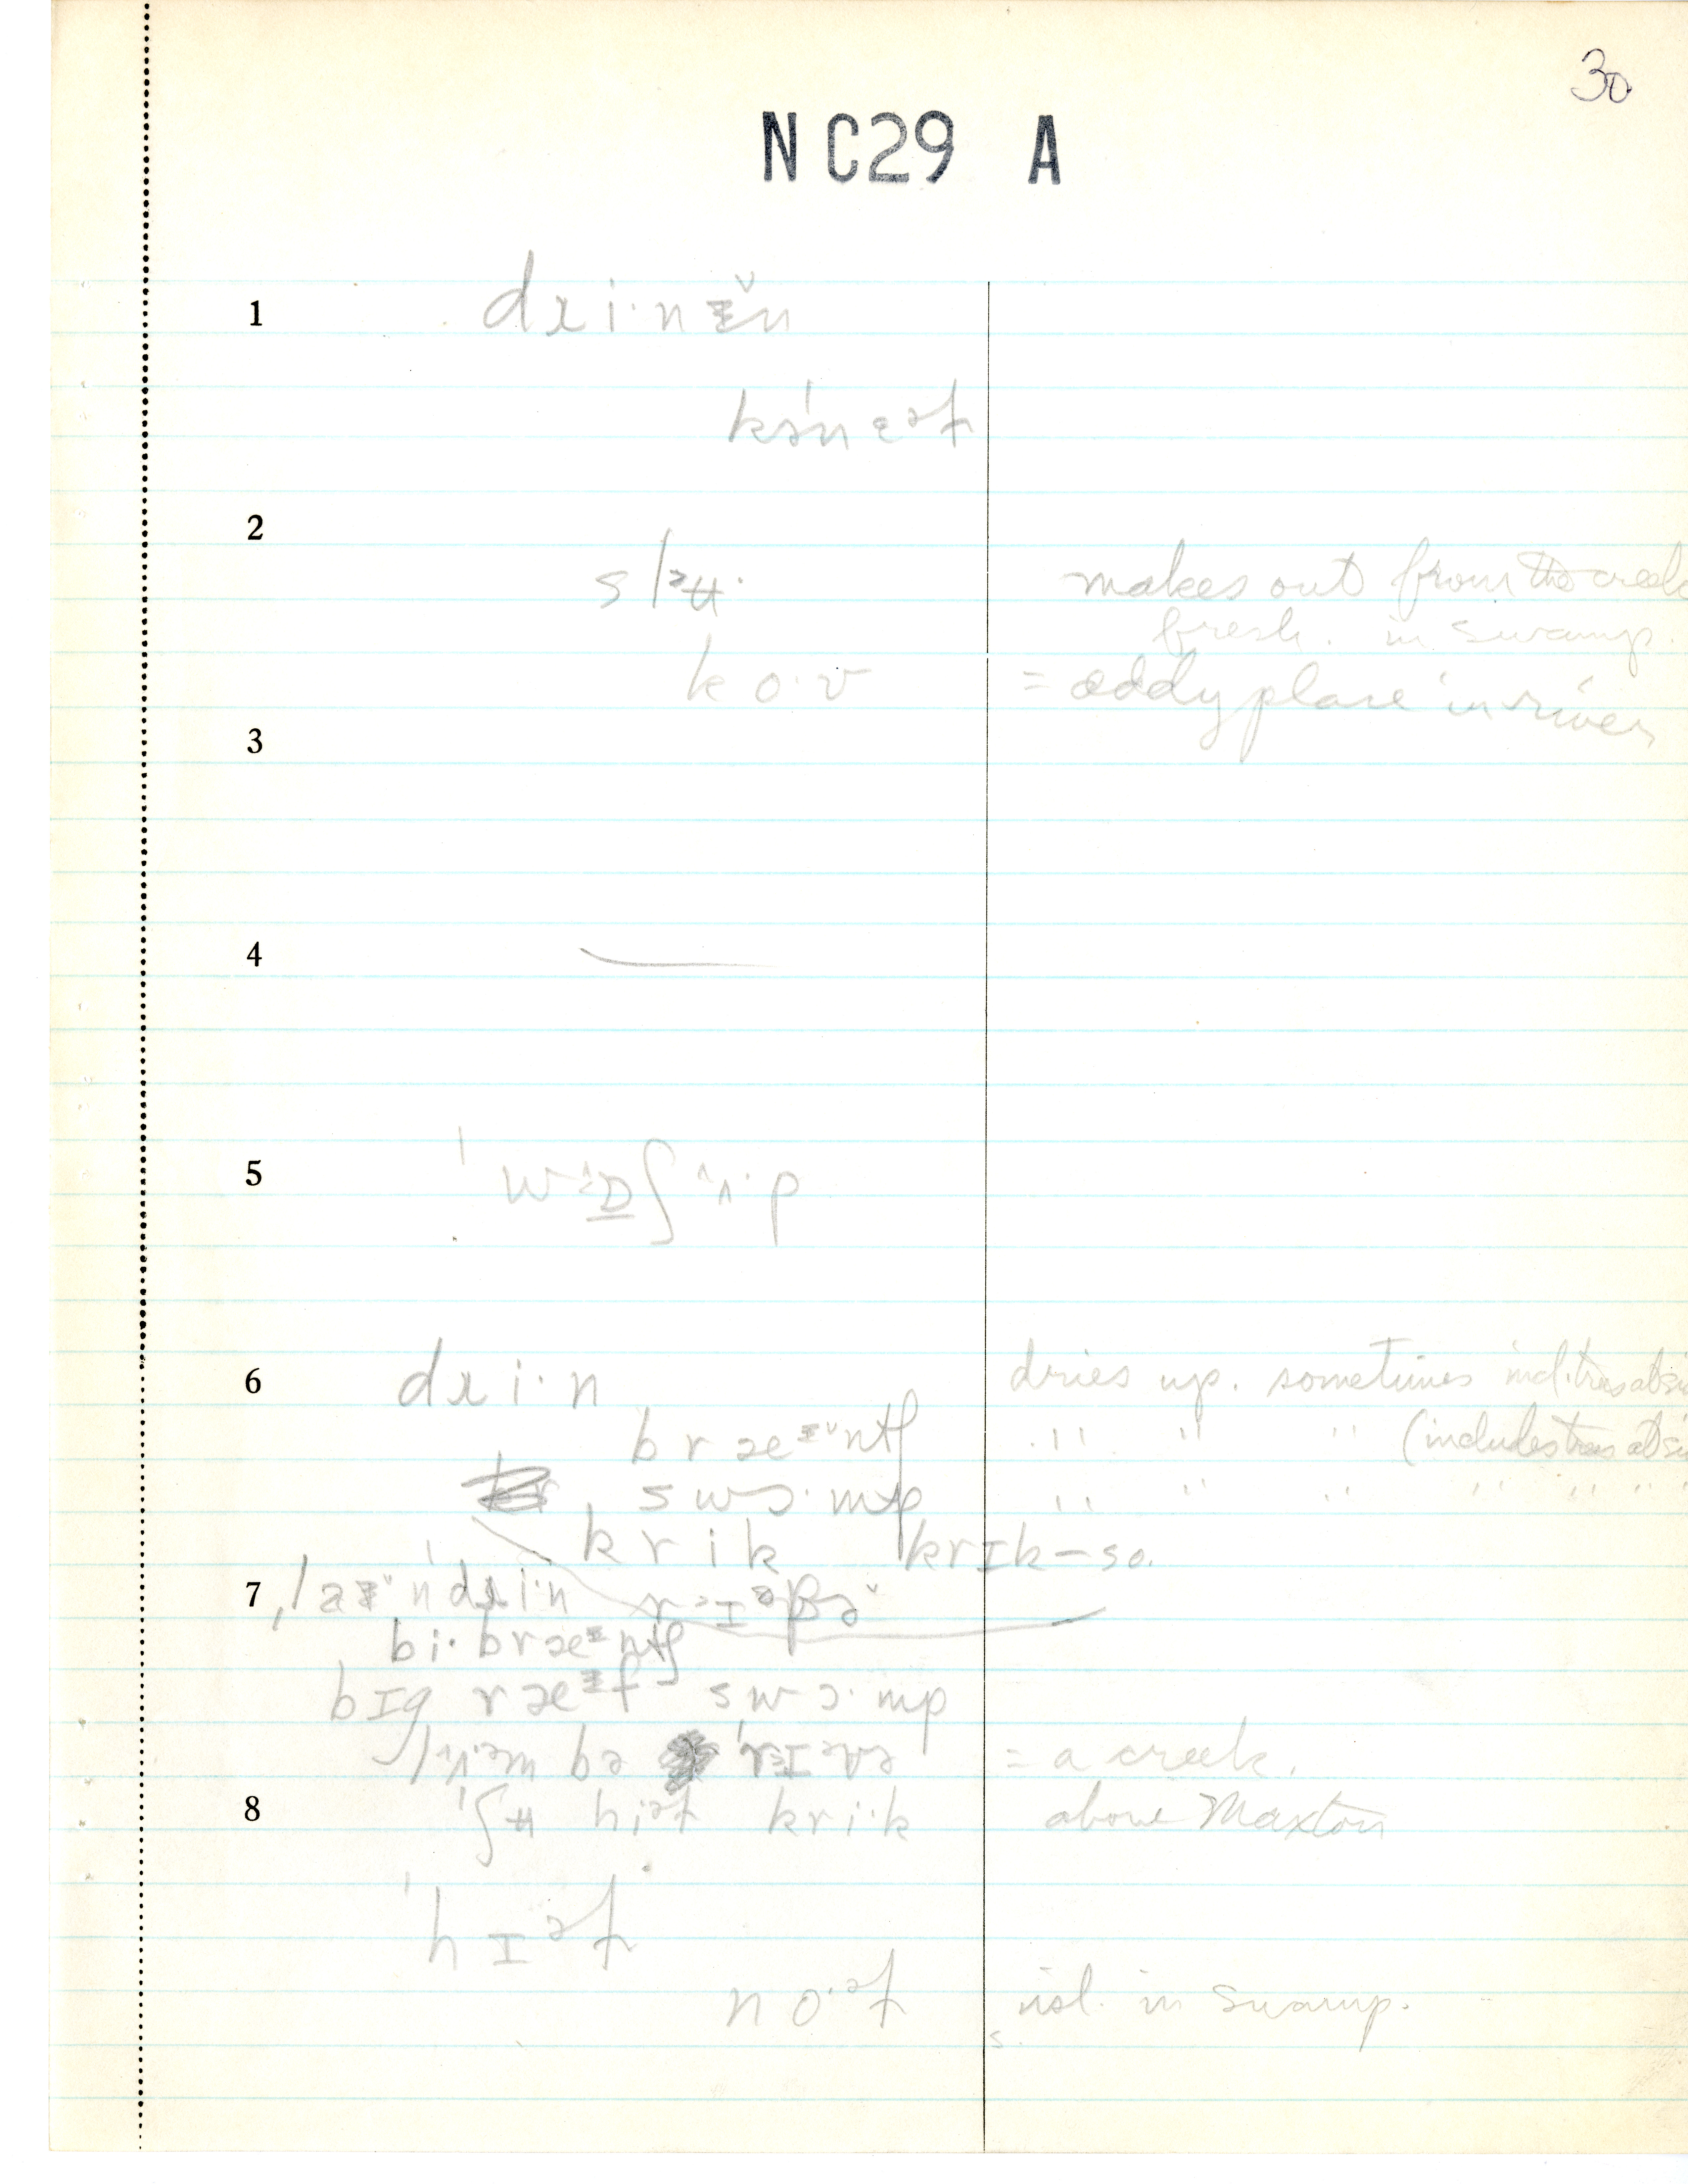 30
NC29 A
1 dɹi·nᵻ̆n
kənɛəɫ
2
slᵊʉ· makes out from the creek
fresh. in swamp.
ko·v = eddy place in river
3
4 —
5 ˈwɒʃʌ·p
6 dɹi·n dries up. sometimes incl. trees at si
bræᵻntʃ " " " (includes trees at si
swɔ·mp " " " " " " "
krik krɪk – so.
7
bi·bræᵻntʃ
bɪg ræᵻf swɔ·mp
= a creek.
8 ˈʃʉ hiᵊɫ kri·k above Maxton
ˈhɪᵊɫ
no·ᵊɫ isl. in swamp.
s.